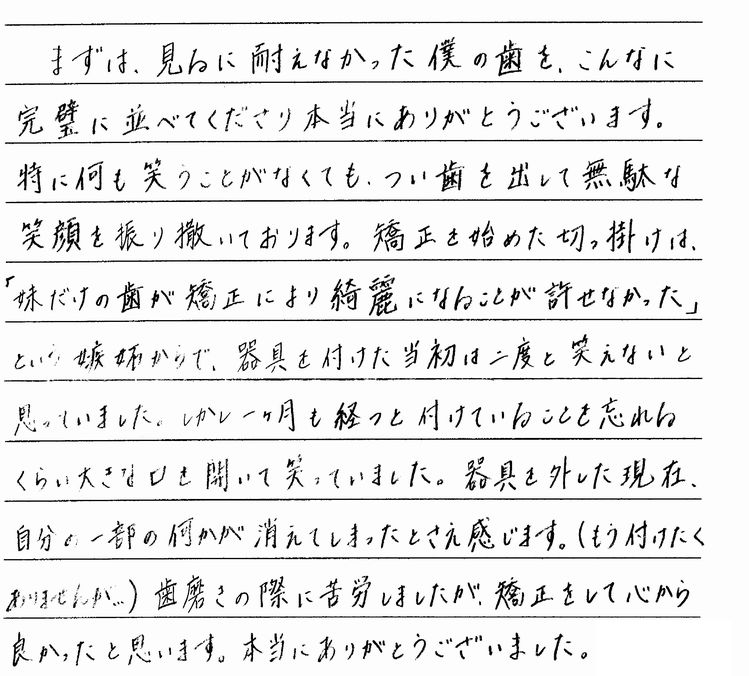 まずは、見るに耐えなかった僕の歯を、こんなに
完璧に並べてくださり本当にありがとうございます。
特に何も笑うことがなくても、つい歯を出して無駄な
笑顔を振り撒いております。矯正を始めた切っ掛けは、
「妹だけの歯が矯正により綺麗になることが許せなかった」
という嫉妬からで、器具を付けた当初は二度と笑えないと
思っていました。しかし一ヶ月も経つと付けていることを忘れる
くらい大きな口を開いて笑っていました。器具を外した現在、
自分の一部の何かが消えてしまったとさえ感じます。(もう付けたく
ありませんが…)歯磨きの際に苦労しましたが、矯正をして心から
良かったと思います。本当にありがとうございました。